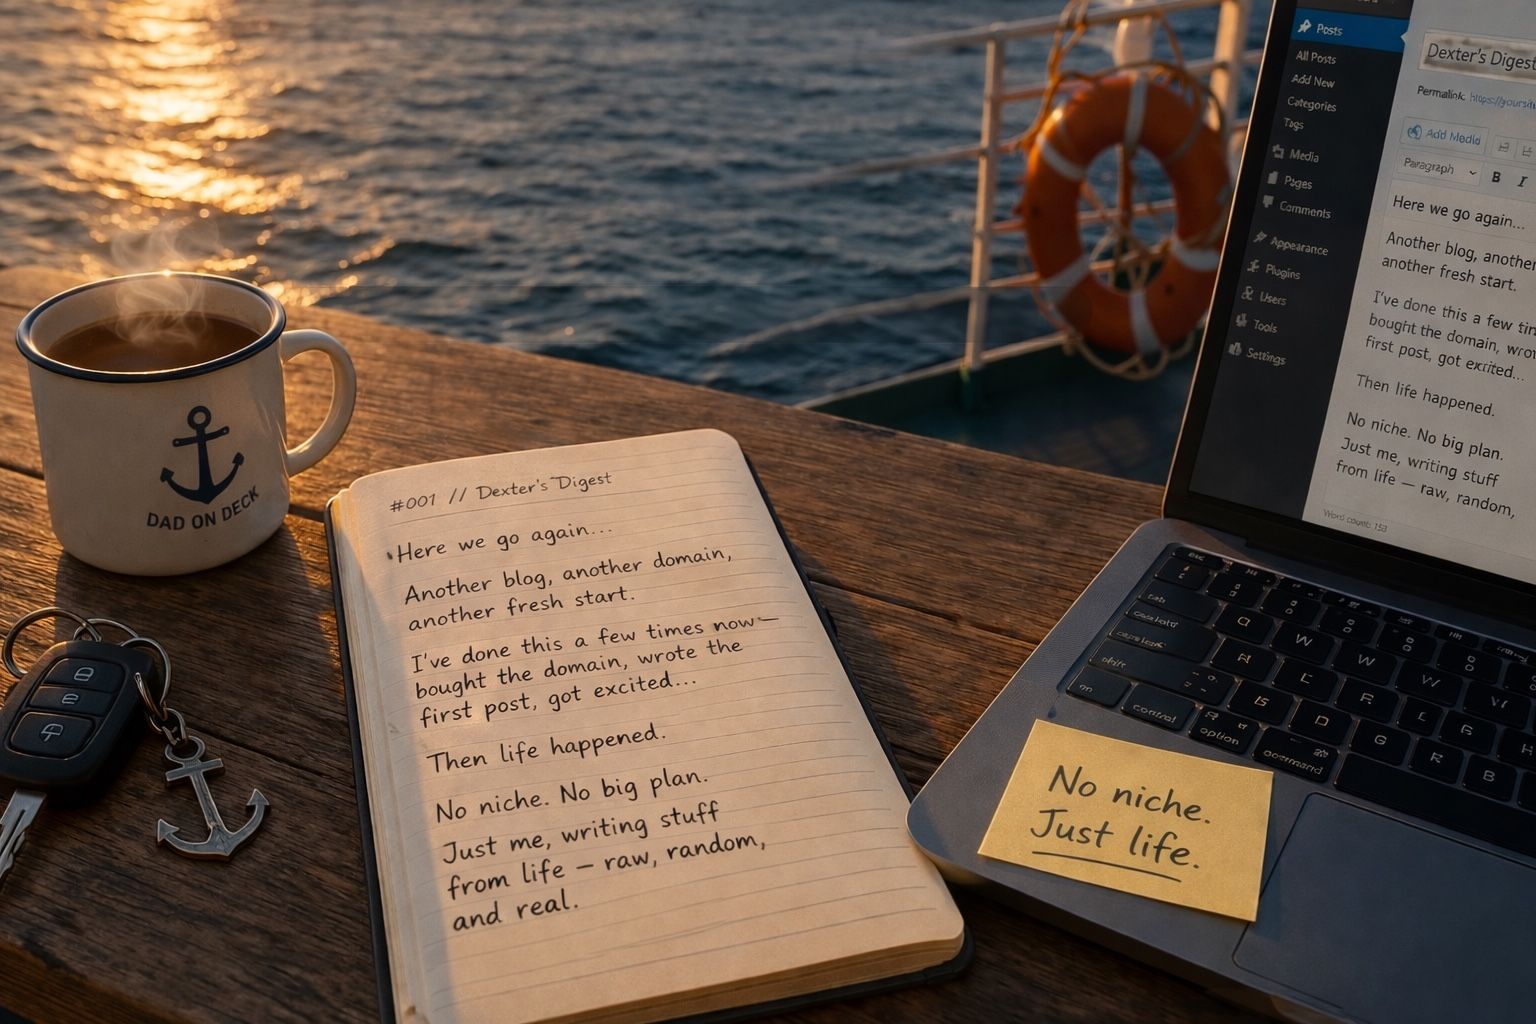 DAD ON DECK
#001 // Dexter's Digest
Here we go again...
Another blog, another domain,
another fresh start.
I've done this a few times now—
bought the domain, wrote the
first post, got excited...
Then life happened.
No niche. No big plan.
Just me, writing stuff
from life – raw, random,
and real.
Posts
All Posts
Add New
Categories
Tags
Media
Pages
Comments
Appearance
Plugins
Users
Tools
Settings
Dexter's Digest
Permalink:
Add Media
Paragraph
B I
Here we go again...
Another blog, another
another fresh start.
I've done this a few
bought the domain,
first post, got excited...
Then life happened.
No niche. No big plan.
Just me, writing stuff
from life — raw, random,
Word count: 153
No niche.
Just life.
control
option
command